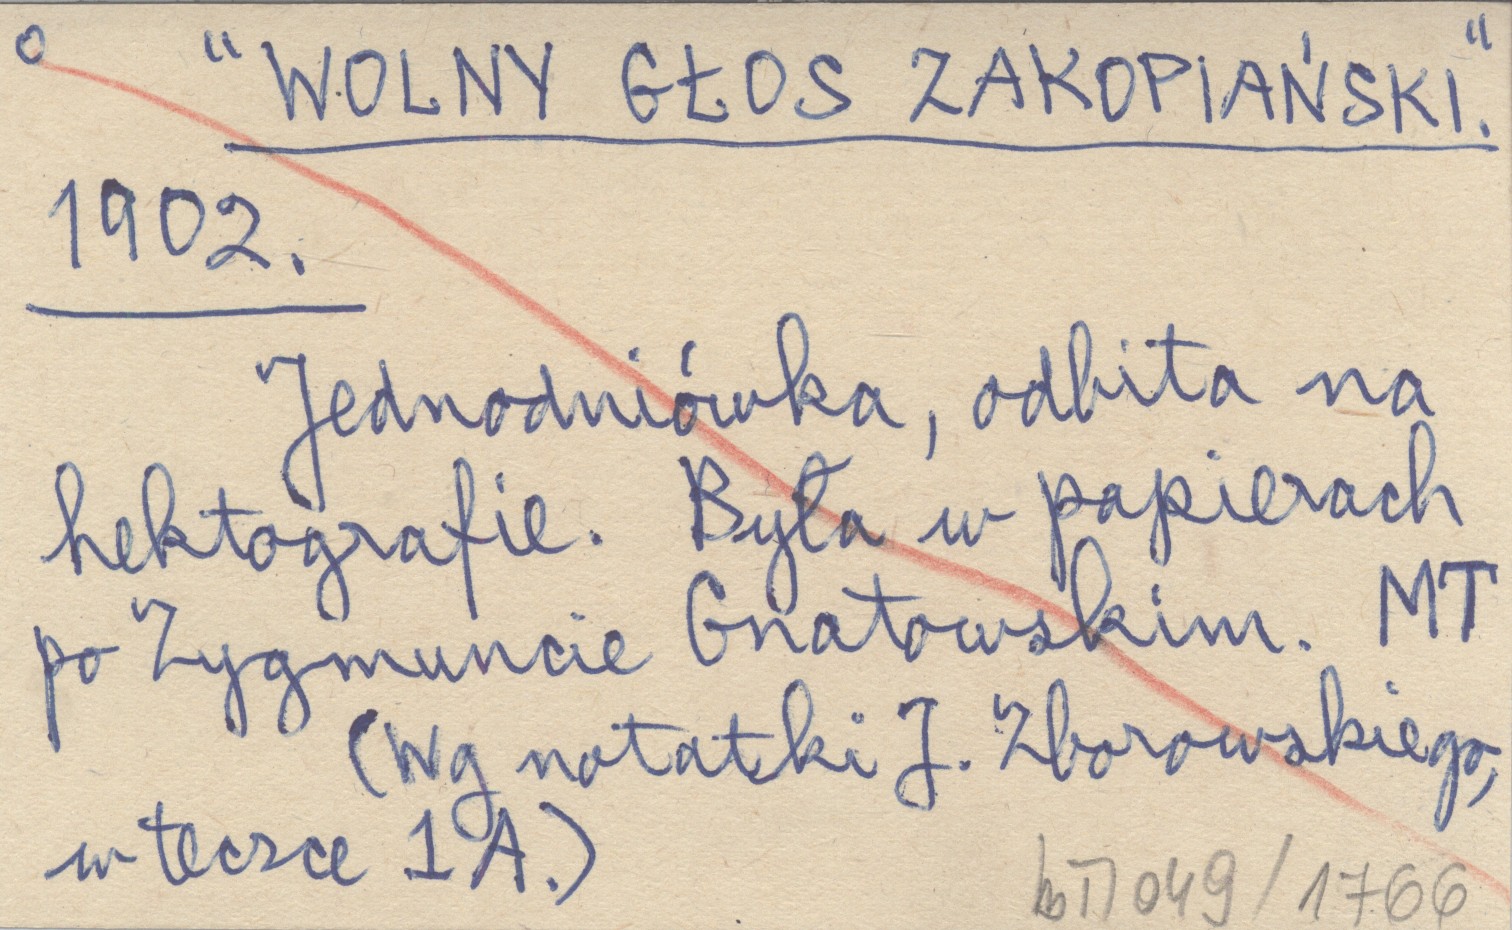 "WOLNY GŁOS ZAKOPIAŃSKI."
1902.
Jednodniówka, odbita na
hektografie. Była w papierach
po Zygmuncie Gnatowskim. MT
(Wg notatki J. Zborowskiego,
w teczce 1A.)
049/1766